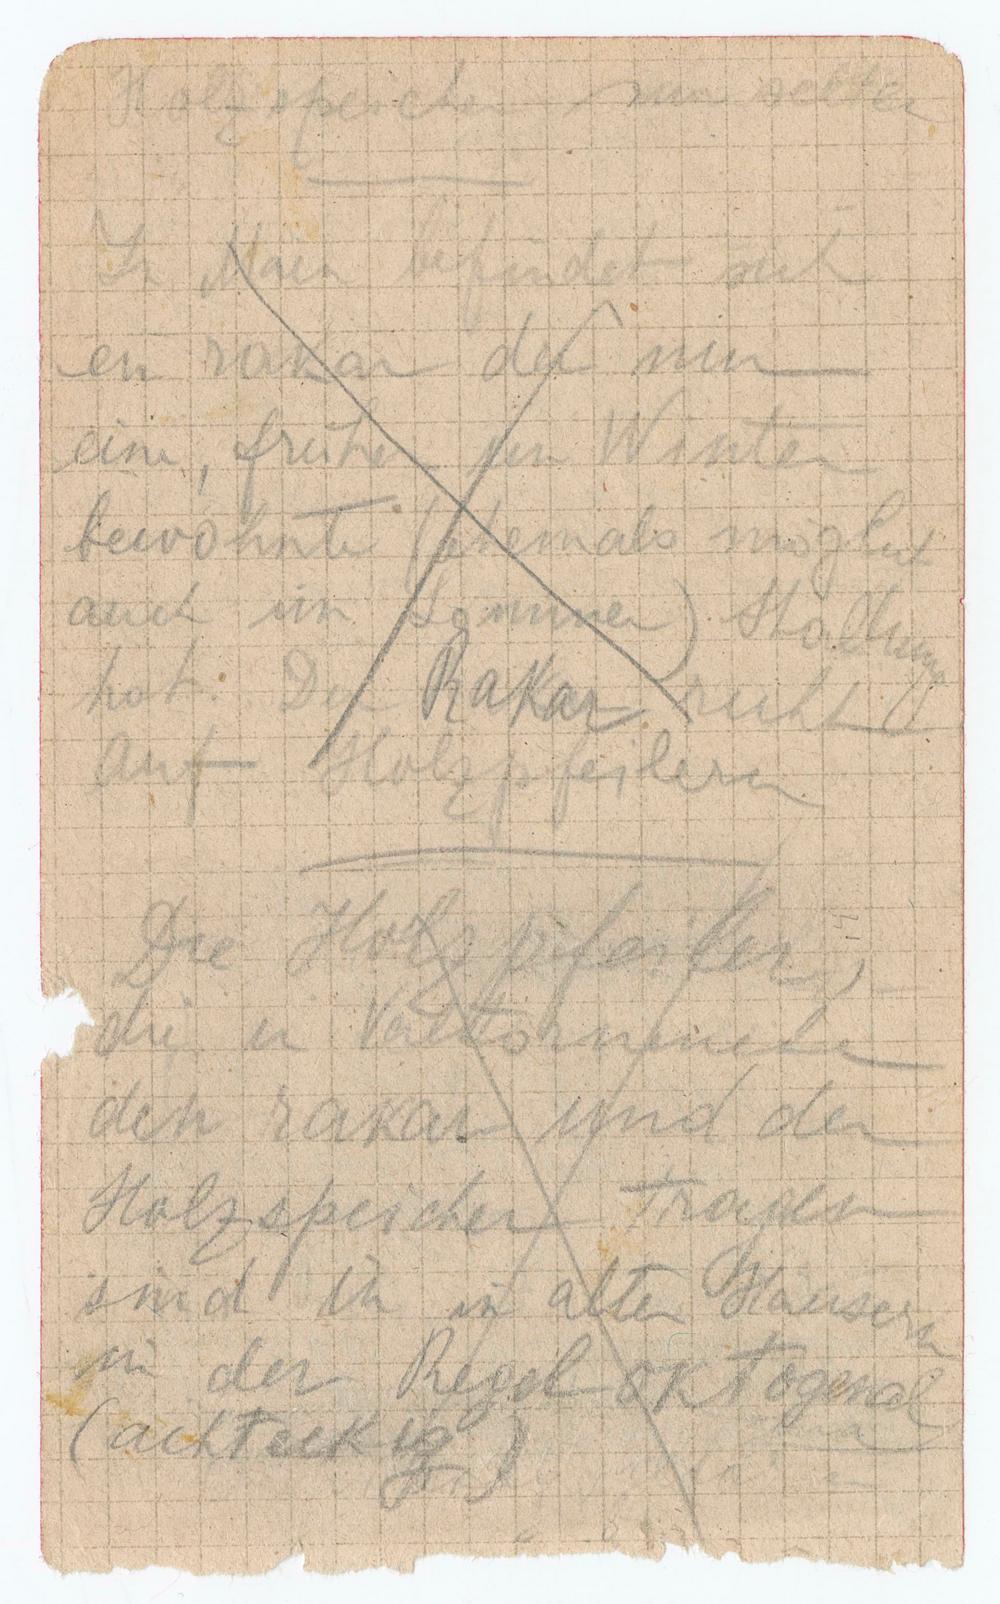 Holzspeicher nun selten
In Maen befindet sich
en rakar der nun
eine, früher im Winter
bewohnte (ehemals möglich
auch im Sommer) Stallung
hat. Der Rakar ruht
auf Holzpfeilern
Die Holzpfeiler,
die in
den rakar und den
Holzspeicher tragen
sind in in alten Häusern
in der Regel oktogonal
(achteckig)